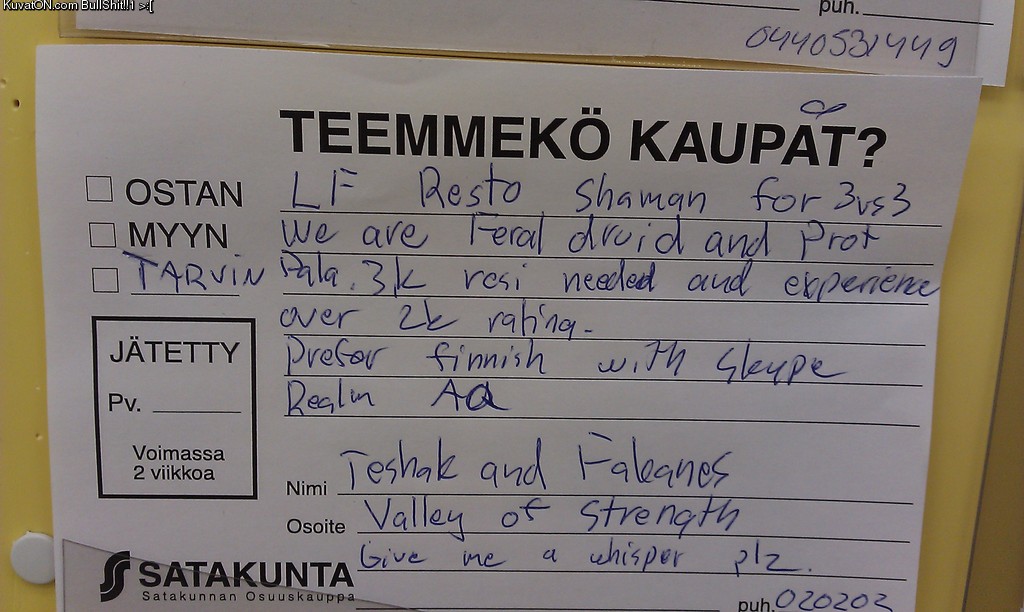 KuvatON.com BullShit!!1 >:[
puh.
0440531449
TEEMMEKÖ KAUPAT?
OSTAN
LF Resto Shaman for 3vs3
MYYN
We are Feral druid and Prot
TARVIN
Pala. 3k resi needed and experience
over 2k rating.
Prefer finnish with Skype
Realm AD
JÄTETTY
Pv.
Voimassa
2 viikkoa
Nimi Teshak and Fakanes
Osoite Valley of Strength
Give me a whisper plz.
SATAKUNTA
Satakunnan Osuuskauppa
puh. 020202